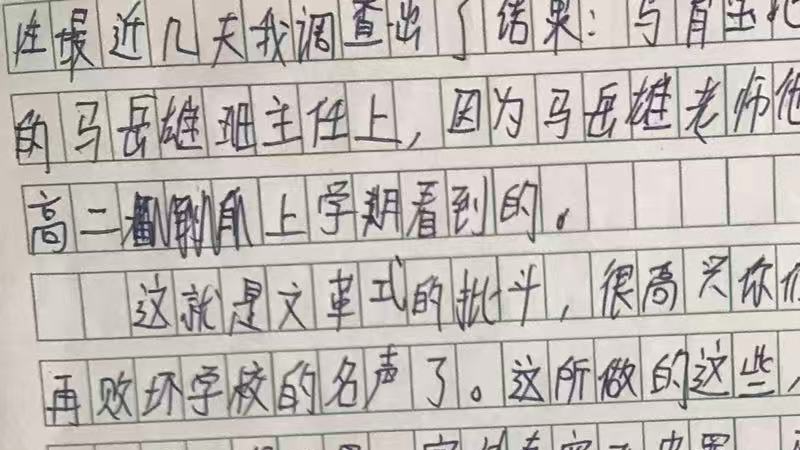 性最近几天我调查出了结果:与肖
的马岳雄班主任上,因为马岳雄老师他
高二上学期看到的。
这就是文革式的批斗,很高兴你们
再败坏学校的名声了。这所做的这些,